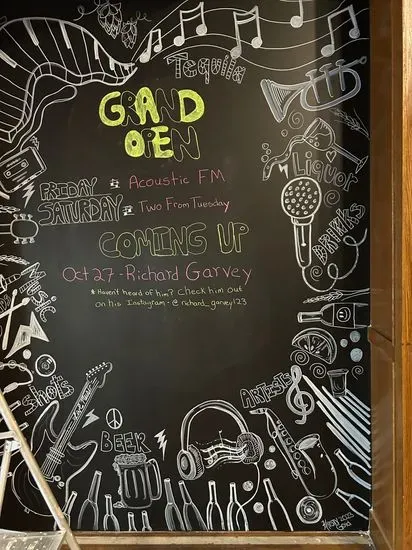 Tequila
GRAND
OPEN
Liquor
FRIDAY Acoustic FM
SATURDAY Two From Tuesday
DRINKS
COMING UP
Oct 27 - Richard Garvey
* Haven't heard of him? Check him out
on his Instagram - @richard_garvey123
Music
Shots
ARTISTS
BEER